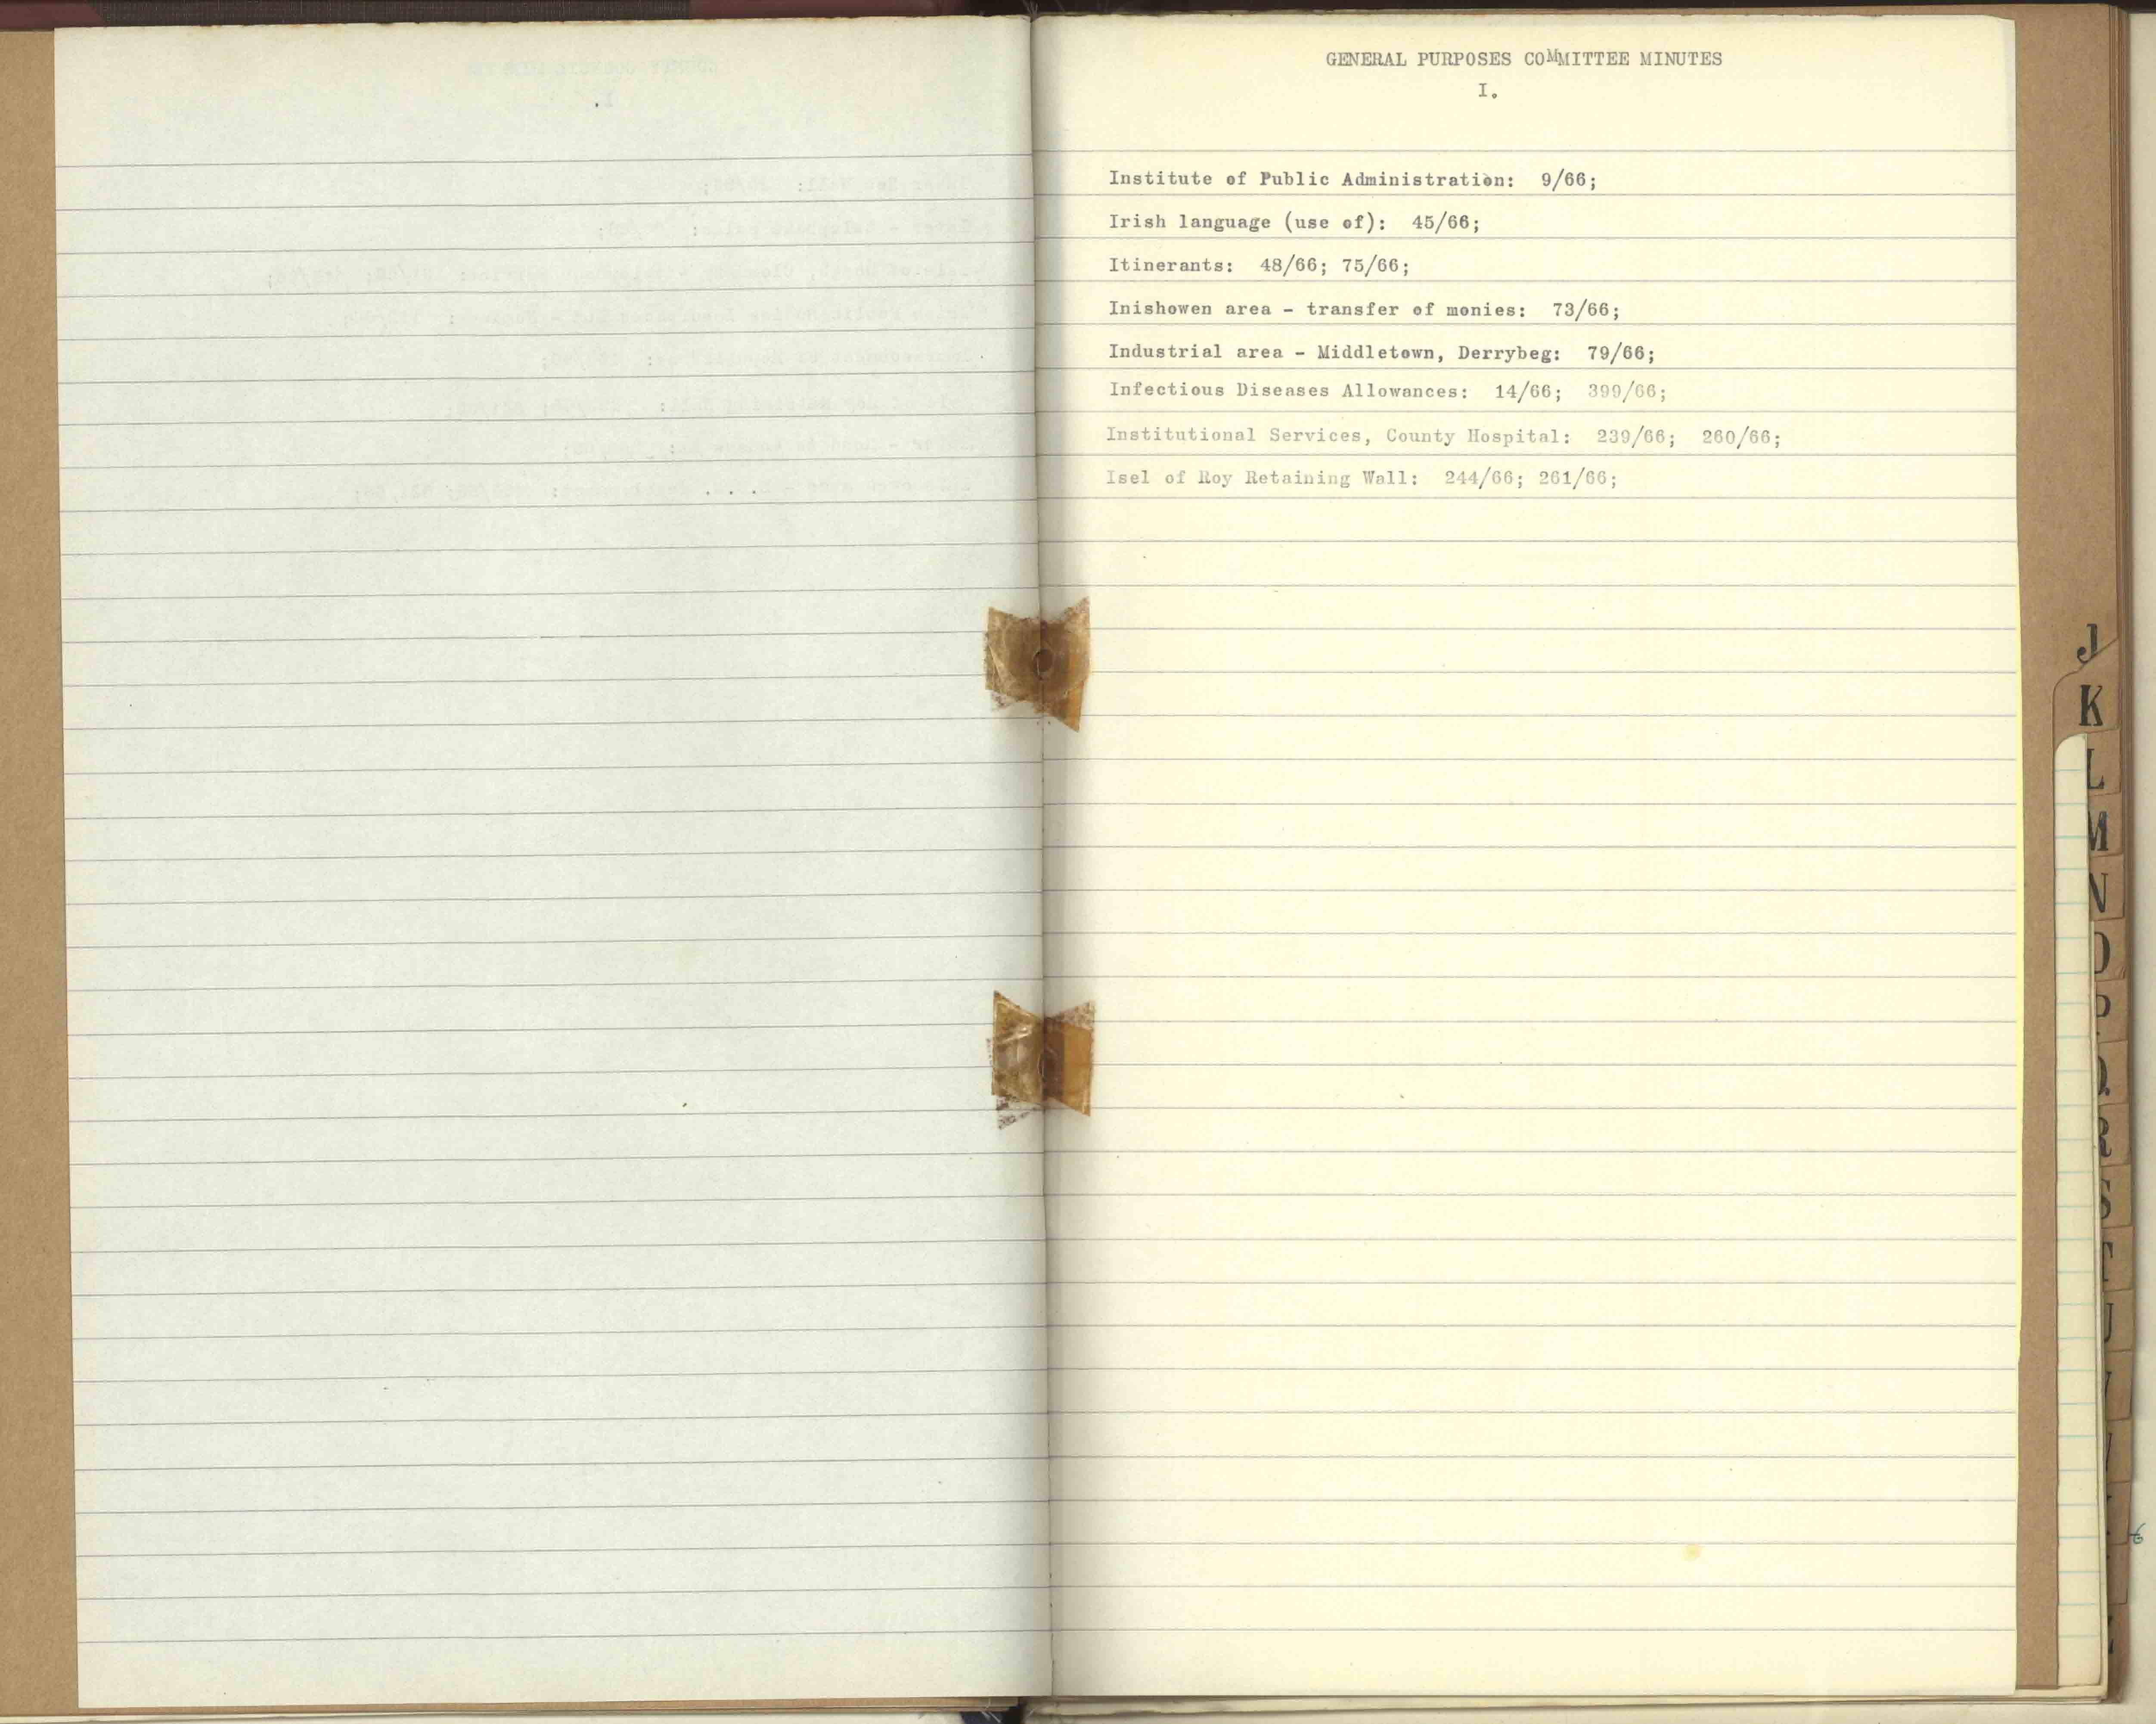 GENERAL PURPOSES COMMITTEE MINUTES
I.
Institute of Public Administration: 9/66;
Irish language (use of): 45/66;
Itinerants: 48/66; 75/66;
Inishowen area - transfer of monies: 73/66;
Industrial area - Middletown, Derrybeg: 79/66;
Infectious Diseases Allowances: 14/66; 399/66;
Institutional Services, County Hospital: 239/66; 260/66;
Isel of Roy Retaining Wall: 244/66; 261/66;
J
K
L
M
N
O
P
Q
R
S
T
U